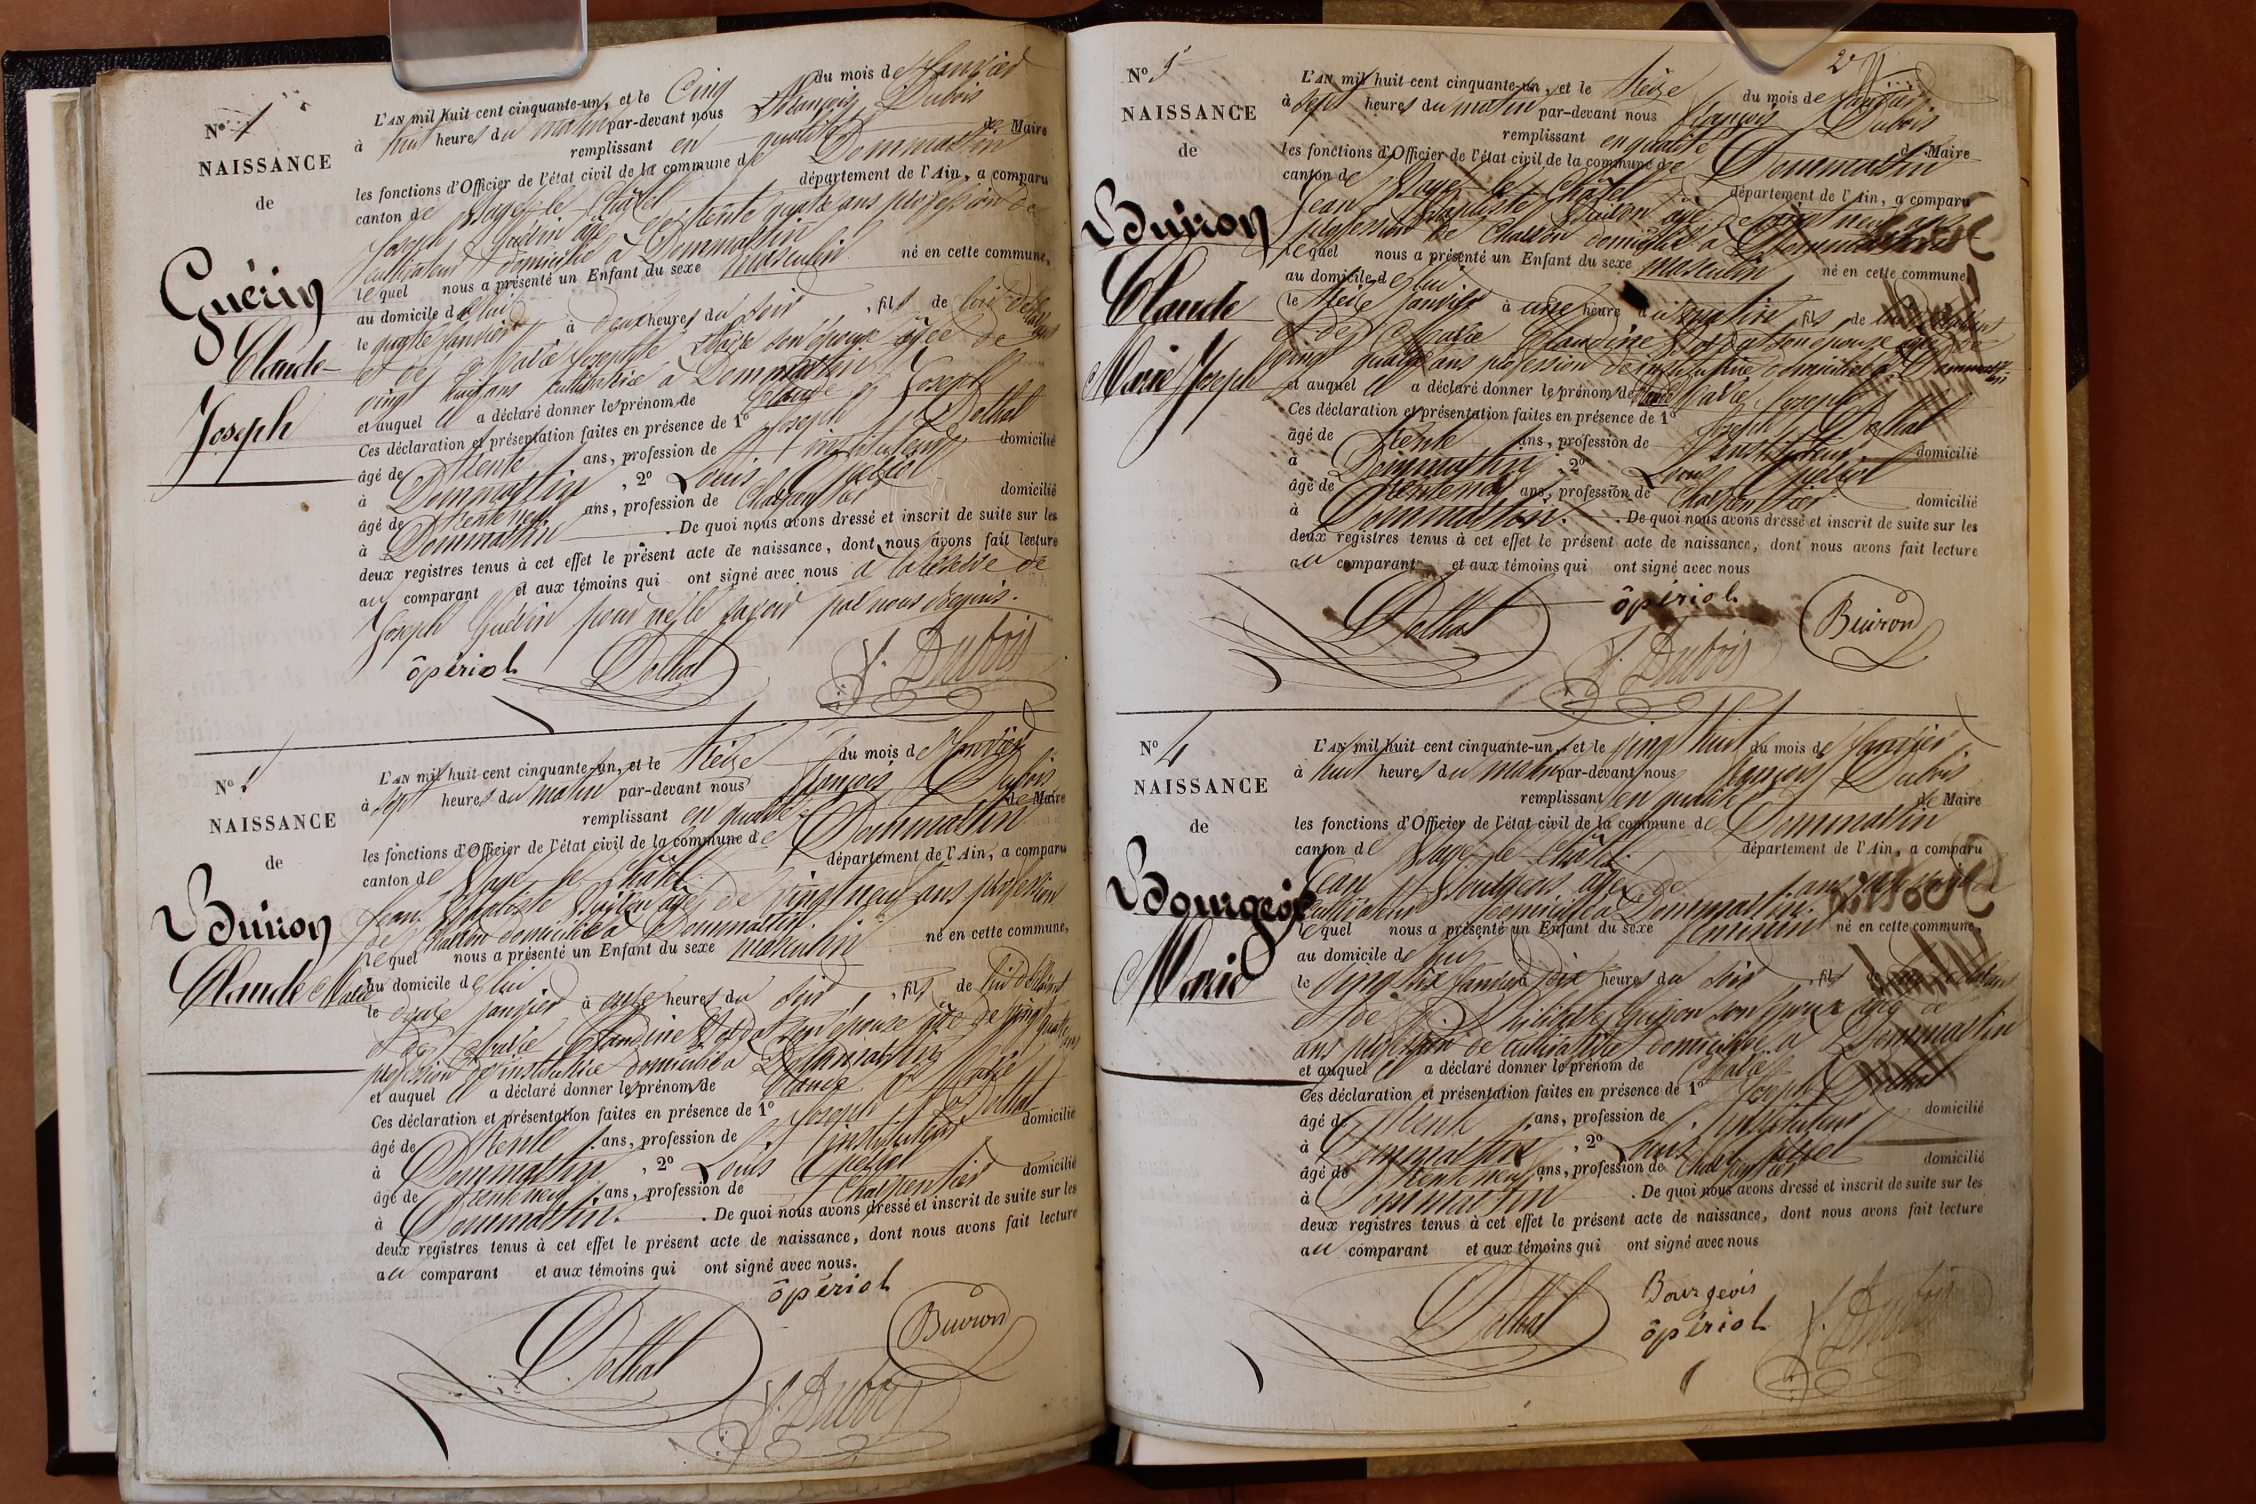 N° 1
NAISSANCE
de
Guérin
Claude
Joseph
L'AN mil huit cent cinquante-un, et le Cinq du mois de Janvier
à huit heures du matin par-devant nous François Dubois
remplissant en qualité de Maire
les fonctions d'Officier de l'état civil de la commune de Dommartin
canton de Bagé-le-Châtel département de l'Ain, a comparu
Joseph Guérin âgé de trente quatre ans profession de
cultivateur domicilié à Dommartin
lequel nous a présenté un Enfant du sexe masculin né en cette commune,
au domicile de lui
le quatre Janvier à deux heures du soir, fils de lui déclarant
et de Marie Josephte son épouse âgée de
vingt huit ans cultivatrice à Dommartin
et auquel il a déclaré donner les prénom de Claude Joseph
Ces déclaration et présentation faites en présence de 1° Joseph Dothal
âgé de trente ans, profession de instituteur domicilié
à Dommartin, 2° Louis Opériol
âgé de trente neuf ans, profession de Charpentier domicilié
à Dommartin. De quoi nous avons dressé et inscrit de suite sur les
deux registres tenus à cet effet le présent acte de naissance, dont nous avons fait lecture
au comparant et aux témoins qui ont signé avec nous à la réserve de
Joseph Guérin pour ne le savoir par nous requis.
ôpériol Dothal F. Dubois
N° 2
NAISSANCE
de
Buiron
Claude Marie
L'AN mil huit cent cinquante-un, et le treize du mois de Janvier
à sept heures du matin par-devant nous François Dubois
remplissant en qualité de Maire
les fonctions d'Officier de l'état civil de la commune de Dommartin
canton de Bagé le Châtel département de l'Ain, a comparu
Jean Baptiste Buiron âgé de vingt neuf ans profession
de Charron domicilié à Dommartin
lequel nous a présenté un Enfant du sexe masculin né en cette commune,
au domicile de lui
le douze Janvier à onze heures du soir, fils de lui déclarant
et de Marie Claudine son épouse âgée de vingt quatre ans
profession d'institutrice domiciliée à Dommartin
et auquel il a déclaré donner les prénom de Claude Marie
Ces déclaration et présentation faites en présence de 1° Joseph Dothal
âgé de trente ans, profession de instituteur domicilié
à Dommartin, 2° Louis Opériol
âgé de trente neuf ans, profession de Charpentier domicilié
à Dommartin. De quoi nous avons dressé et inscrit de suite sur les
deux registres tenus à cet effet le présent acte de naissance, dont nous avons fait lecture
au comparant et aux témoins qui ont signé avec nous.
ôpériol
Dothal Buiron
F. Dubois
2
N° 3
NAISSANCE
de
Buiron
Claude
Marie Joseph
L'AN mil huit cent cinquante-un, et le treize du mois de Janvier
à sept heures du matin par-devant nous François Dubois
remplissant en qualité de Maire
les fonctions d'Officier de l'état civil de la commune de Dommartin
canton de Bagé-le-Châtel département de l'Ain, a comparu
Jean Baptiste Buiron âgé de vingt neuf ans
profession de Charron domicilié à Dommartin
lequel nous a présenté un Enfant du sexe masculin né en cette commune,
au domicile de lui
le treize Janvier à une heure du matin, fils de lui déclarant
et de Marie Claudine son épouse âgée de
vingt quatre ans profession d'institutrice domiciliée à Dommartin
et auquel il a déclaré donner les prénom de Claude Marie Joseph
Ces déclaration et présentation faites en présence de 1° Joseph Dothal
âgé de trente ans, profession de instituteur domicilié
à Dommartin, 2° Louis Opériol
âgé de trente neuf ans, profession de Charpentier domicilié
à Dommartin. De quoi nous avons dressé et inscrit de suite sur les
deux registres tenus à cet effet le présent acte de naissance, dont nous avons fait lecture
au comparant et aux témoins qui ont signé avec nous
Dothal ôpériol Buiron
F. Dubois
N° 4
NAISSANCE
de
Bourgeois
Marie
L'AN mil huit cent cinquante-un, et le vingt huit du mois de Janvier
à huit heures du matin par-devant nous François Dubois
remplissant en qualité de Maire
les fonctions d'Officier de l'état civil de la commune de Dommartin
canton de Bagé-le-Châtel département de l'Ain, a comparu
Jean Bourgeois âgé de ans profession de
cultivateur domicilié à Dommartin
lequel nous a présenté un Enfant du sexe féminin né en cette commune,
au domicile de lui
le vingt six Janvier à dix heures du soir, fille de lui déclarant
et de son épouse âgée de
ans profession de cultivatrice domiciliée à Dommartin
et auquel il a déclaré donner le prénom de Marie
Ces déclaration et présentation faites en présence de 1° Joseph Dothal
âgé de trente ans, profession de instituteur domicilié
à Dommartin, 2° Louis Opériol
âgé de trente neuf ans, profession de Charpentier domicilié
à Dommartin. De quoi nous avons dressé et inscrit de suite sur les
deux registres tenus à cet effet le présent acte de naissance, dont nous avons fait lecture
au comparant et aux témoins qui ont signé avec nous
Bourgeois
Dothal ôpériol F. Dubois